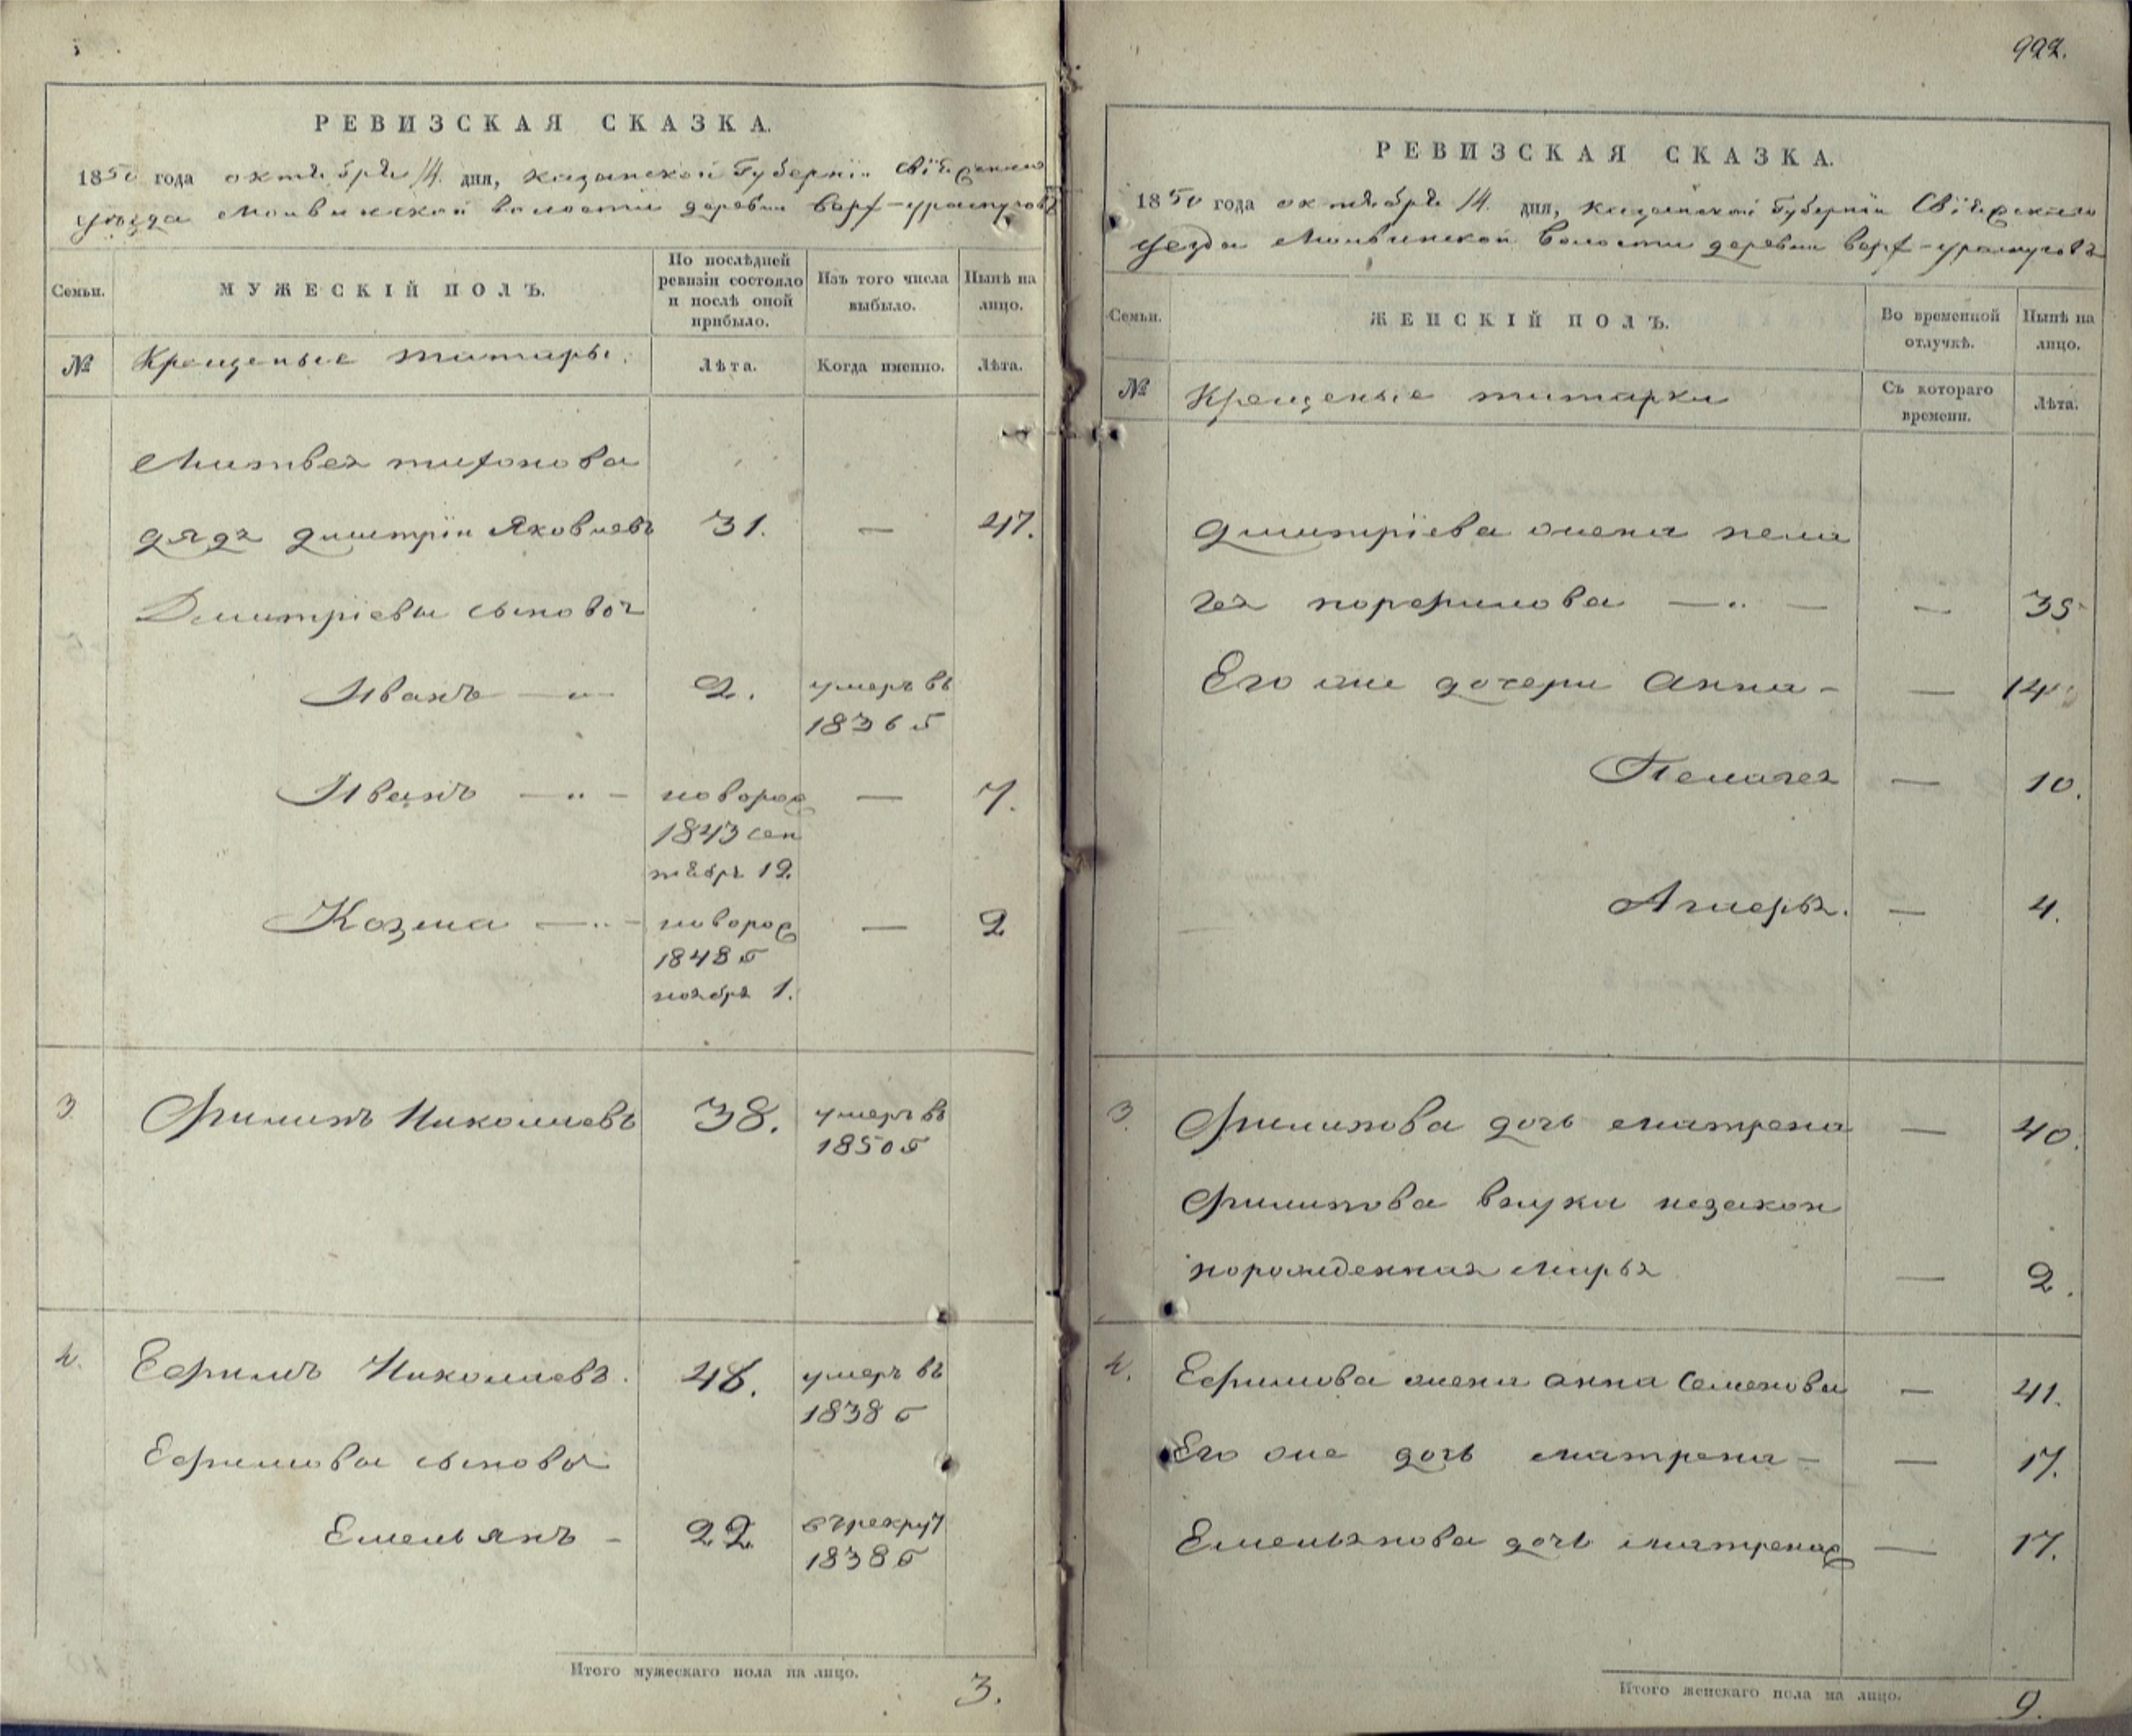 922.
РЕВИЗСКАЯ СКАЗКА.
1850 года октября 14 дня, казанской Губернiи Свiяжскаго
уѣзда волости деревни верх-ураспуговъ
Семьи.
МУЖЕСКІЙ ПОЛЪ.
По послѣдней
ревизіи состояло
и послѣ оной
прибыло.
Изъ того числа
выбыло.
Нынѣ на
лицо.
№
Крещеные татары.
Лѣта.
Когда именно.
Лѣта.
Матвея тифонова
дядя дмитрiи Яковлевъ 31. — 47.
Дмитрiевы сыновья
Иванъ — „ — 2. умеръ въ
1836 г
Иванъ — „ — новорож — 7.
1843 сен
тября 12.
Козма — „ — новорож — 2
1848 г
ноября 1.
3 Филипъ Николаевъ 38. умеръ въ
1850 г
4. Ефимъ Николаевъ. 48. умеръ въ
1838 г
Ефимовы сыновья
Емельянъ – 22 въ рекрут
1838 г
Итого мужескаго пола на лицо. 3.
РЕВИЗСКАЯ СКАЗКА.
1850 года октября 14. дня, казанской Губернiи Свiяжскаго
уезда волости деревни верх-ураспуговъ
Семьи.
ЖЕНСКІЙ ПОЛЪ.
Во временной
отлучкѣ.
Нынѣ на
лицо.
№
Крещеные татарки
Съ котораго
времени.
Лѣта.
дмитрiева жена пела
гея порфилова — „ — — 35
Его же дочери Анна – — 14
Пелагея — 10.
— 4.
3. Филипова дочь матрена — 40.
Филипова внука незакон
норожденная Марья — 2.
4. Ефимова жена анна Семенова — 41.
Его же дочь матрена – — 17.
Емельянова дочь матрена — 17.
Итого женскаго пола на лицо. 9.